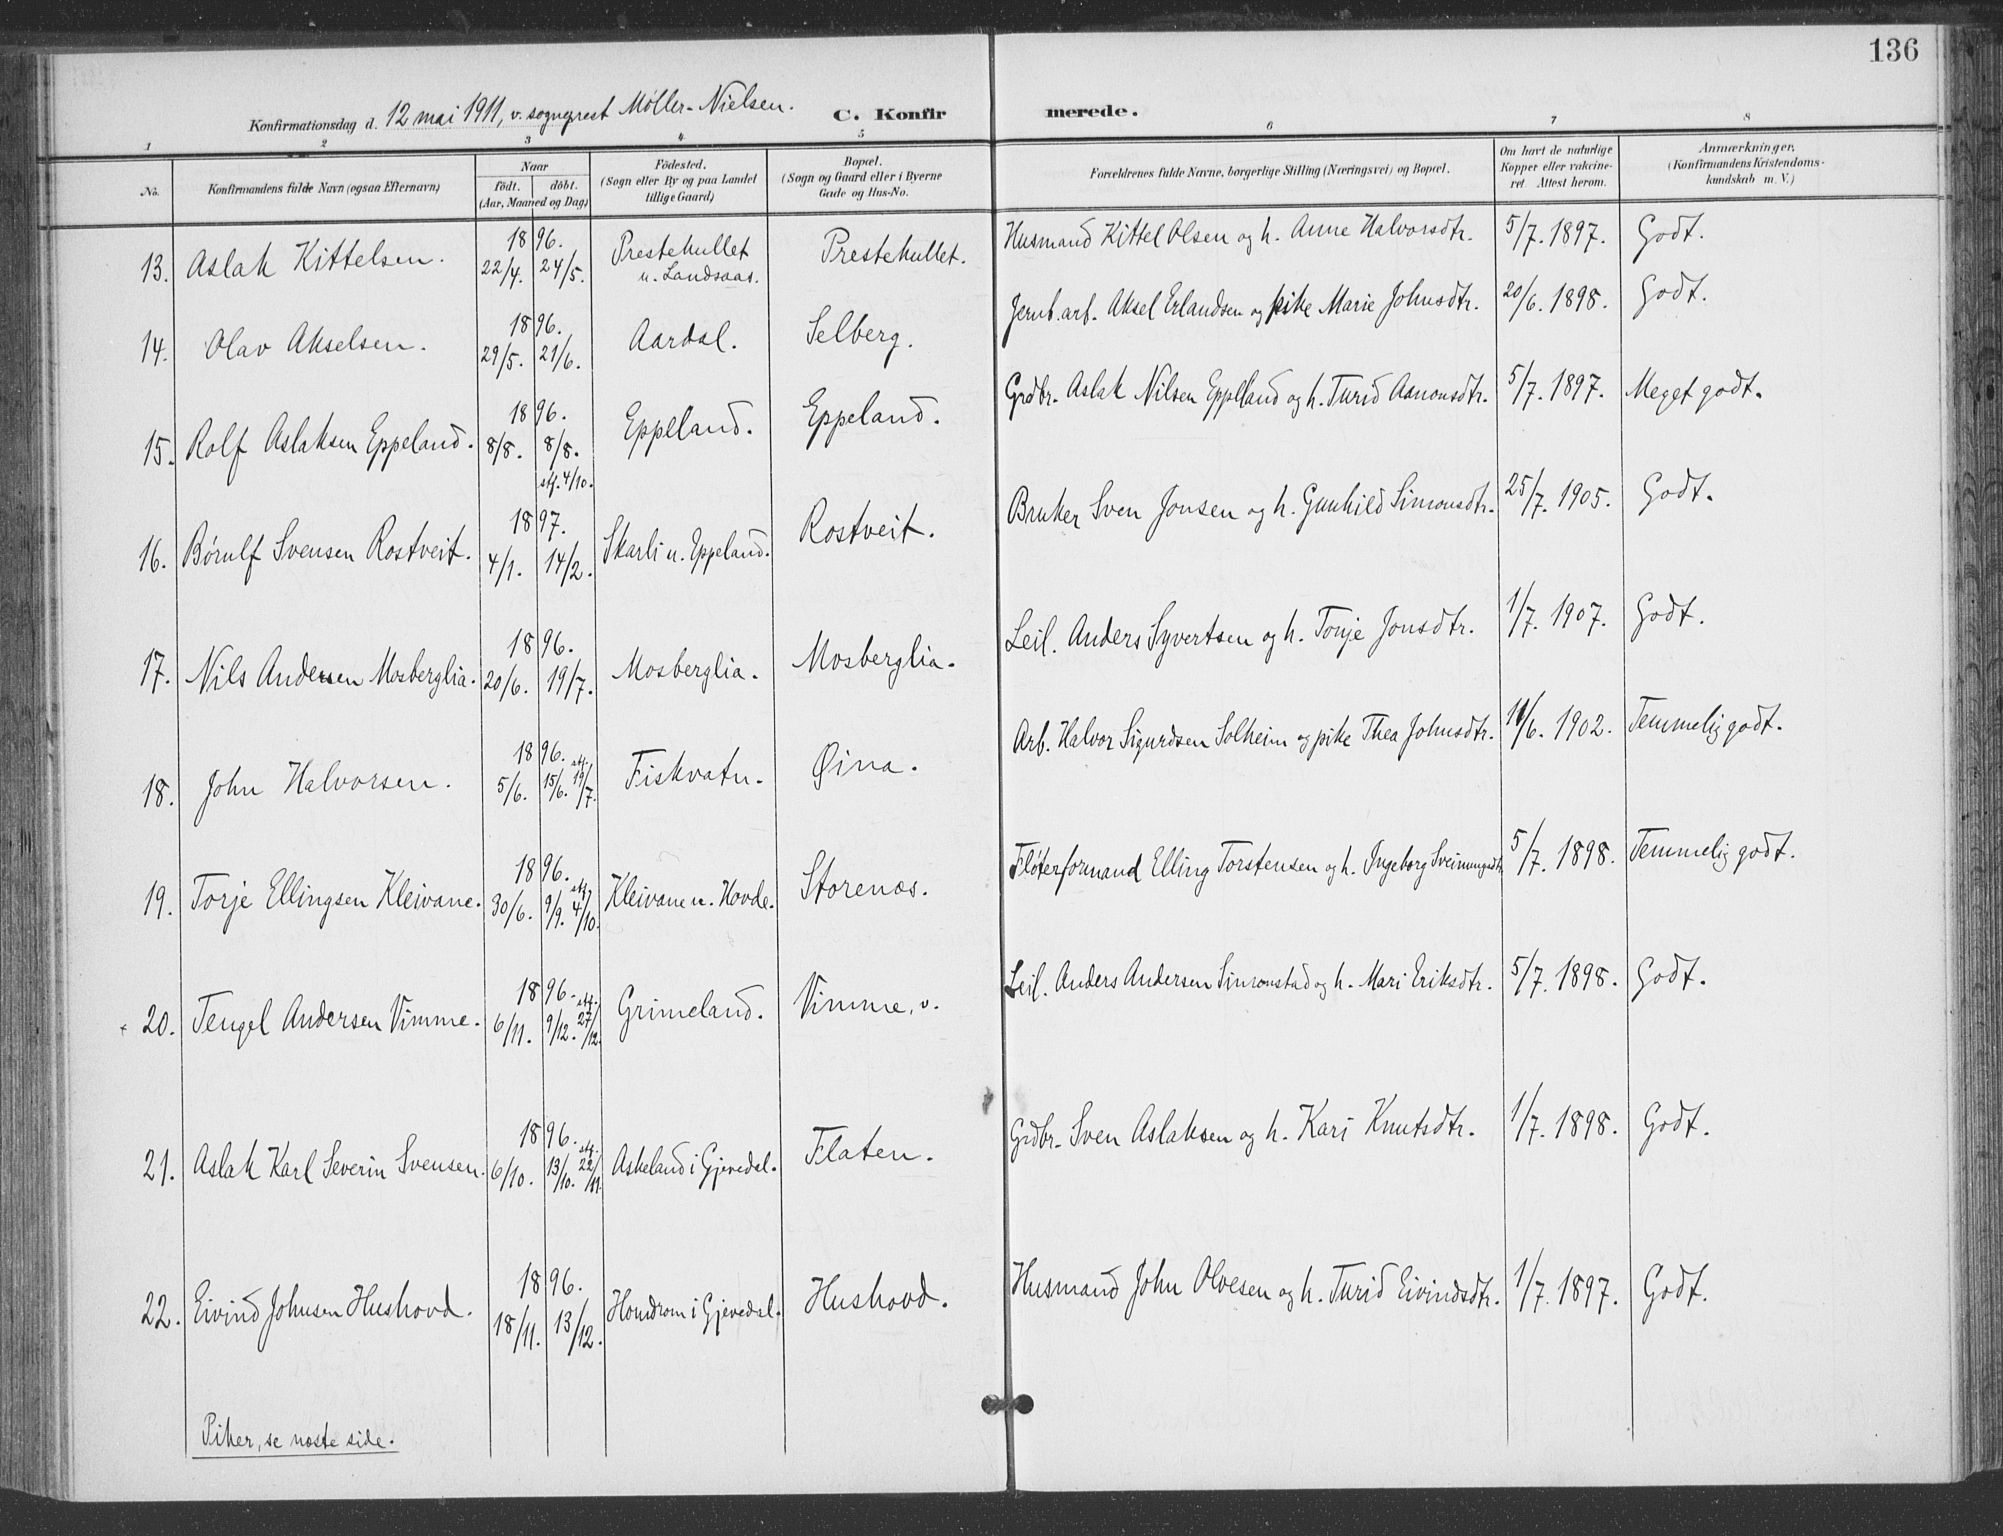 136
Konfirmationsdag d. 12 mai 1911, v. sogneprest Møller-Nielsen.
C. Konfirmerede.
1 2 3 4 5 6 7 8
No.
Konfirmandens fulde Navn (ogsaa Efternavn)
Naar
født. døbt.
(Aar, Maaned og Dag)
Fødested.
(Sogn eller By og paa Landet
tillige Gaard)
Bopæl.
(Sogn og Gaard eller i Byerne
Gade og Hus-No.
Forældrenes fulde Navne, borgerlige Stilling (Næringsvei) og Bopæl.
Om havt de naturlige
Kopper eller vakcine-
ret. Attest herom.
Anmærkninger.
(Konfirmandens Kristendoms-
kundskab m. V.)
13. Aslak Kittelsen. 1896. 22/4. 24/5. Prestehullet u. Landsaas. Prestehullet. Husmand Kittel Olsen og h. Anne Halvorsdtr. 5/7. 1897. Godt.
14. Olav Akselsen. 1896. 29/5. 21/6. Aardal. Selberg. Jernb.arb. Aksel Erlandsen og pike Marie Johnsdtr. 20/6. 1898. Godt.
15. Rolf Aslaksen Eppeland. 1896. 8/8. 8/8. stf. 4/10. Eppeland. Eppeland. Grdbr. Aslak Nilsen Eppeland og h. Turid Aanonsdtr. 5/7. 1897. Meget godt.
16. Børulf Svensen Rostveit. 1897. 4/1. 14/2. Skarli u. Eppeland. Rostveit. Bruker Sven Jonsen og h. Gunhild Simonsdtr. 25/7. 1905. Godt.
17. Nils Andersen Mosberglia. 1896. 20/6. 19/7. Mosberglia. Mosberglia. Leil. Anders Syvertsen og h. Tonje Jonsdtr. 1/7. 1907. Godt.
18. John Halvorsen. 1896. 5/6. 15/6. stf. 19/7. Fiskvatn. Øina. Arb. Halvor Sigurdsen Solheim og pike Thea Johnsdtr. 11/6. 1902. Temmelig godt.
19. Torje Ellingsen Kleivane. 1896. 30/6. 9/9. stf. 4/10. Kleivane u. Hovde. Storenæs. Fløterformand Elling Torstensen og h. Ingeborg Sveinungsdtr. 5/7. 1898. Temmelig godt.
20. Tengel Andersen Vimme. 1896. 6/11. 9/12. stf. 27/12. Grimeland. Vimme, v. Leil. Anders Andersen Simonstad og h. Mari Eriksdtr. 5/7. 1898. Godt.
21. Aslak Karl Severin Svensen. 1896. 6/10. 13/10. stf. 22/11. Askeland i Gjevedal. Flaten. Grdbr. Sven Aslaksen og h. Kari Knutsdtr. 1/7. 1898. Godt.
22. Eivind Johnsen Hushovd. 1896. 18/11. 13/12. Homdrom i Gjevedal. Hushovd. Husmand John Olvesen og h. Turid Eivindsdtr. 1/7. 1897. Godt.
Piker, se næste side.